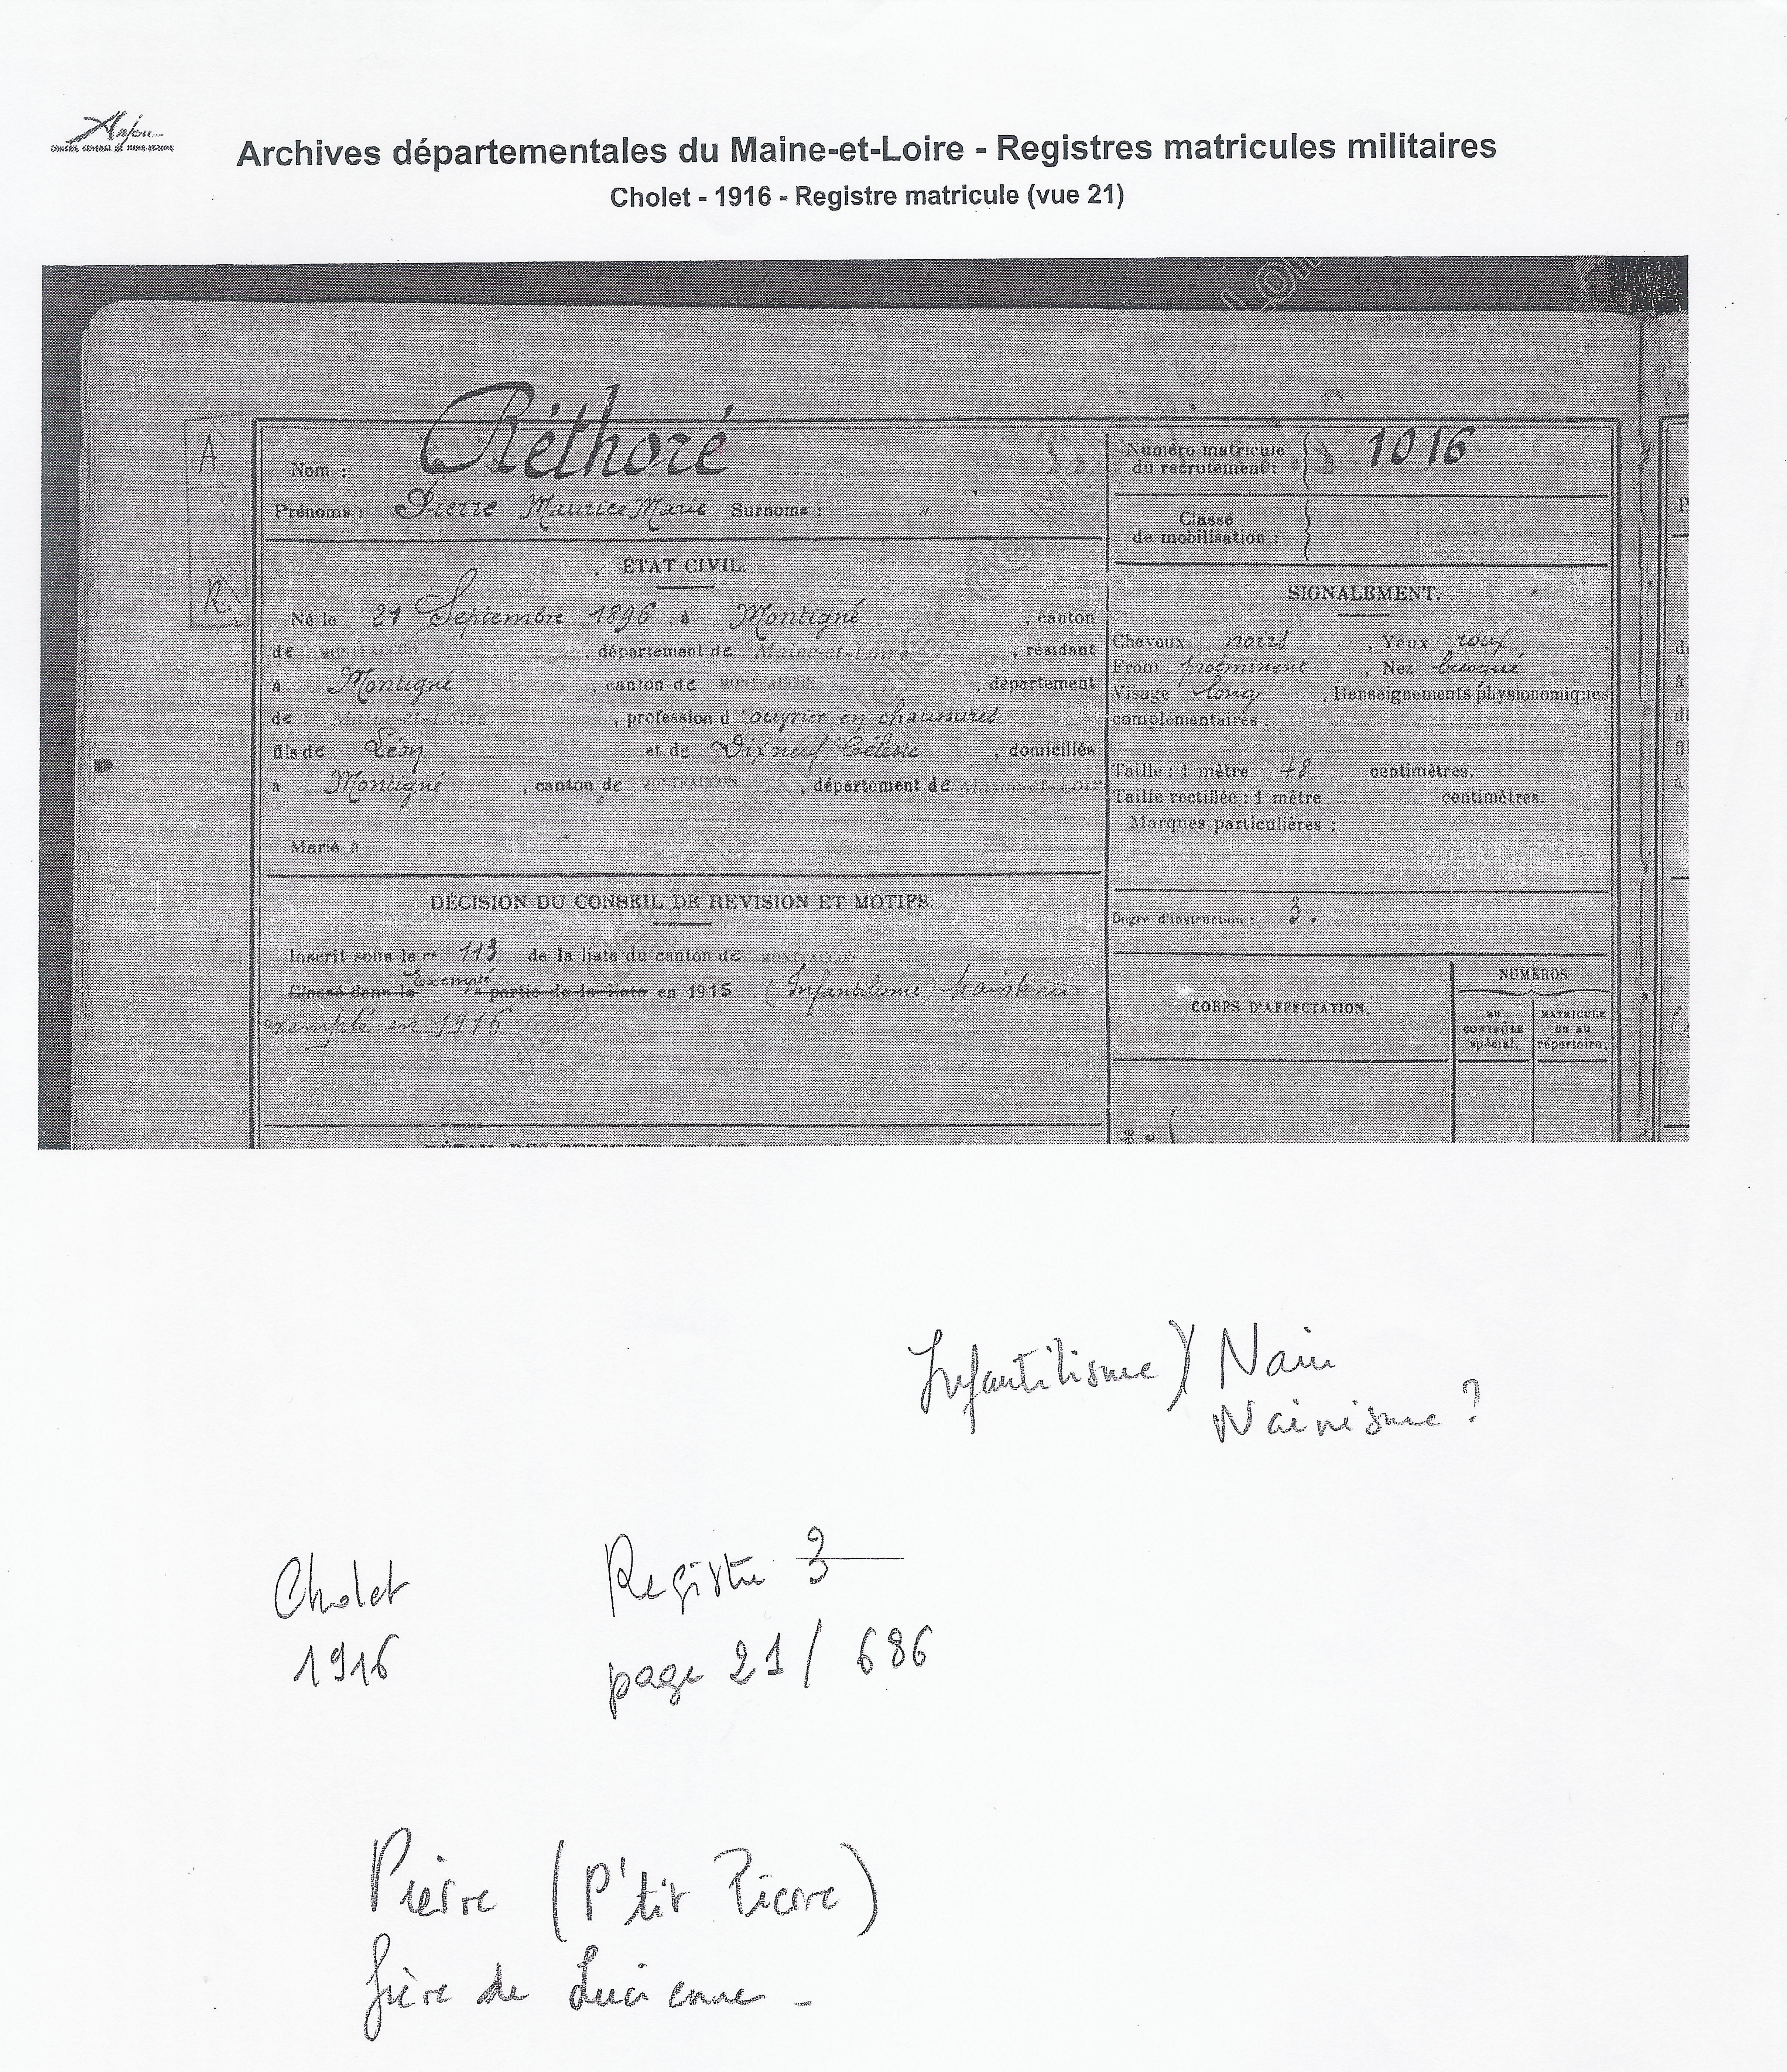 Anjou
CONSEIL GENERAL DE MAINE-ET-LOIRE
Archives départementales du Maine-et-Loire - Registres matricules militaires
Cholet - 1916 - Registre matricule (vue 21)
A
R
Nom : Réthoré
Prénoms : Pierre Maurice Marie Surnoms : "
ÉTAT CIVIL.
Né le 21 Septembre 1896, à Montigné, canton
de MONTFAUCON, département de Maine-et-Loire, résidant
à Montigné, canton de MONTFAUCON, département
de Maine-et-Loire, profession d'ouvrier en chaussures
fils de Léon et de Dixneuf Céleste, domiciliés
à Montigné, canton de MONTFAUCON, département de Maine-et-Loire
Marié à
DÉCISION DU CONSEIL DE REVISION ET MOTIFS.
Inscrit sous le n° 113 de la liste du canton de MONTFAUCON
Exempté
Classé dans la partie de la liste en 1915. (Infantilisme) Maintenu
exempté en 1916
Numéro matricule
du recrutement : 1016
Classe
de mobilisation :
SIGNALEMENT.
Cheveux noirs, Yeux roux
Front proéminent, Nez busqué
Visage long, Renseignements physionomiques
complémentaires :
Taille : 1 mètre 48 centimètres.
Taille rectifiée : 1 mètre centimètres.
Marques particulières :
Degré d'instruction : 3.
CORPS D'AFFECTATION.
NUMÉROS
au
contrôle
spécial.
MATRICULE
ou au
répertoire.
Infantilisme) Nain
Nainisme ?
Cholet
1916
Registre 3
page 21 / 686
Pierre (P'tit Pierre)
frère de Lucienne -